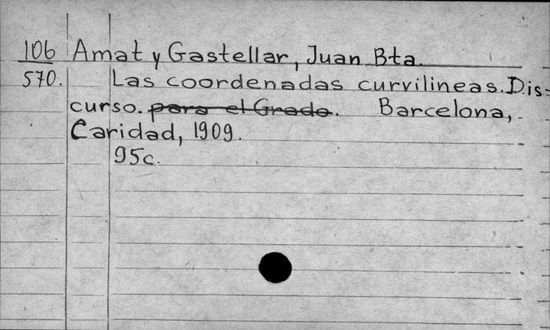 106 Amat y Gastellar, Juan Bta.
570. Las coordenadas curvilineas. Dis-
curso. para el Grado. Barcelona,
Caridad, 1909.
95c.